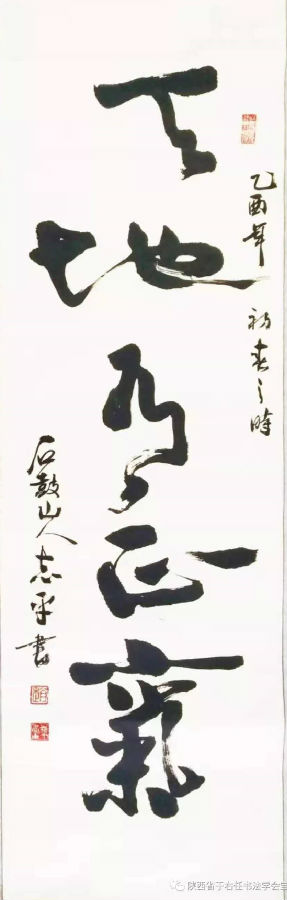 乙酉年 初春之時
天地有正氣
石鼓山人志平書
陕西省于右任书法学会宝